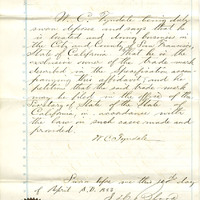 W. C. Tyndale being duly
sworn deposes and says that he
is located and doing business in
the City and County of San Francisco,
State of California. That he is the
exclusive owner of the trade mark
described in the Specification accom-
panying this affidavit, and the
petition that the said trade mark
may be filed in the office of the
Secretary of State of the State
of California, in accordance with
the law in such cases made and
provided.
W. C. Tyndale
Sworn before me this day
of April A.D. 188